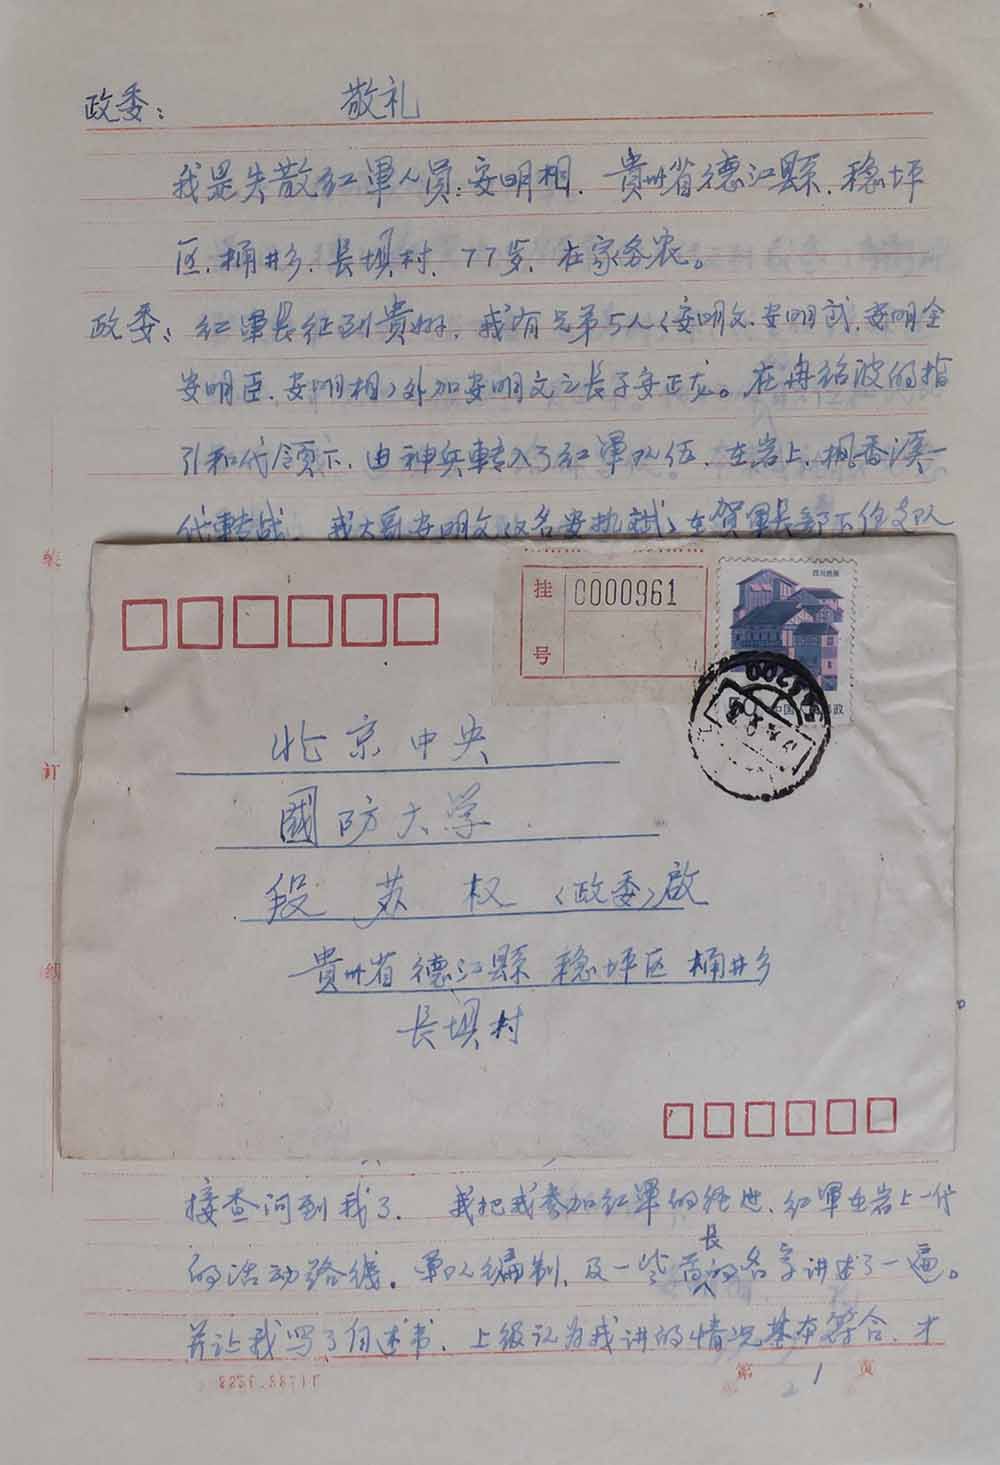 政委： 敬礼
我是失散红軍人員：安明相．貴州省德江縣．稳坪
区．桶井乡．長埧村．77岁．在家务农。
政委：红軍長征到貴州．我有兄弟5人〈安明文．安明武．安明全
安明臣．安明相〉外加安明文之長子安正龙。在冉绍波的指
引和代領下．由神兵轉入了红軍队伍．在岩上．楓香溪一
代轉战．我大哥安明文〈改名安执武〉在贺軍長部下任支队
挂号
0000961
四川民居
50 中国邮政
北京中央
國防大学
段苏权〈政委〉啟
貴州省德江縣稳坪区桶井乡
長埧村
装
订
线
接查问到我了．我把我参加红軍的经过．红軍在岩上一代
的活动路线．軍队编制．及一些首長的名字讲述了一遍。
并让我写了自述书．上级认为我讲的情况基本符合．才
第 1 页